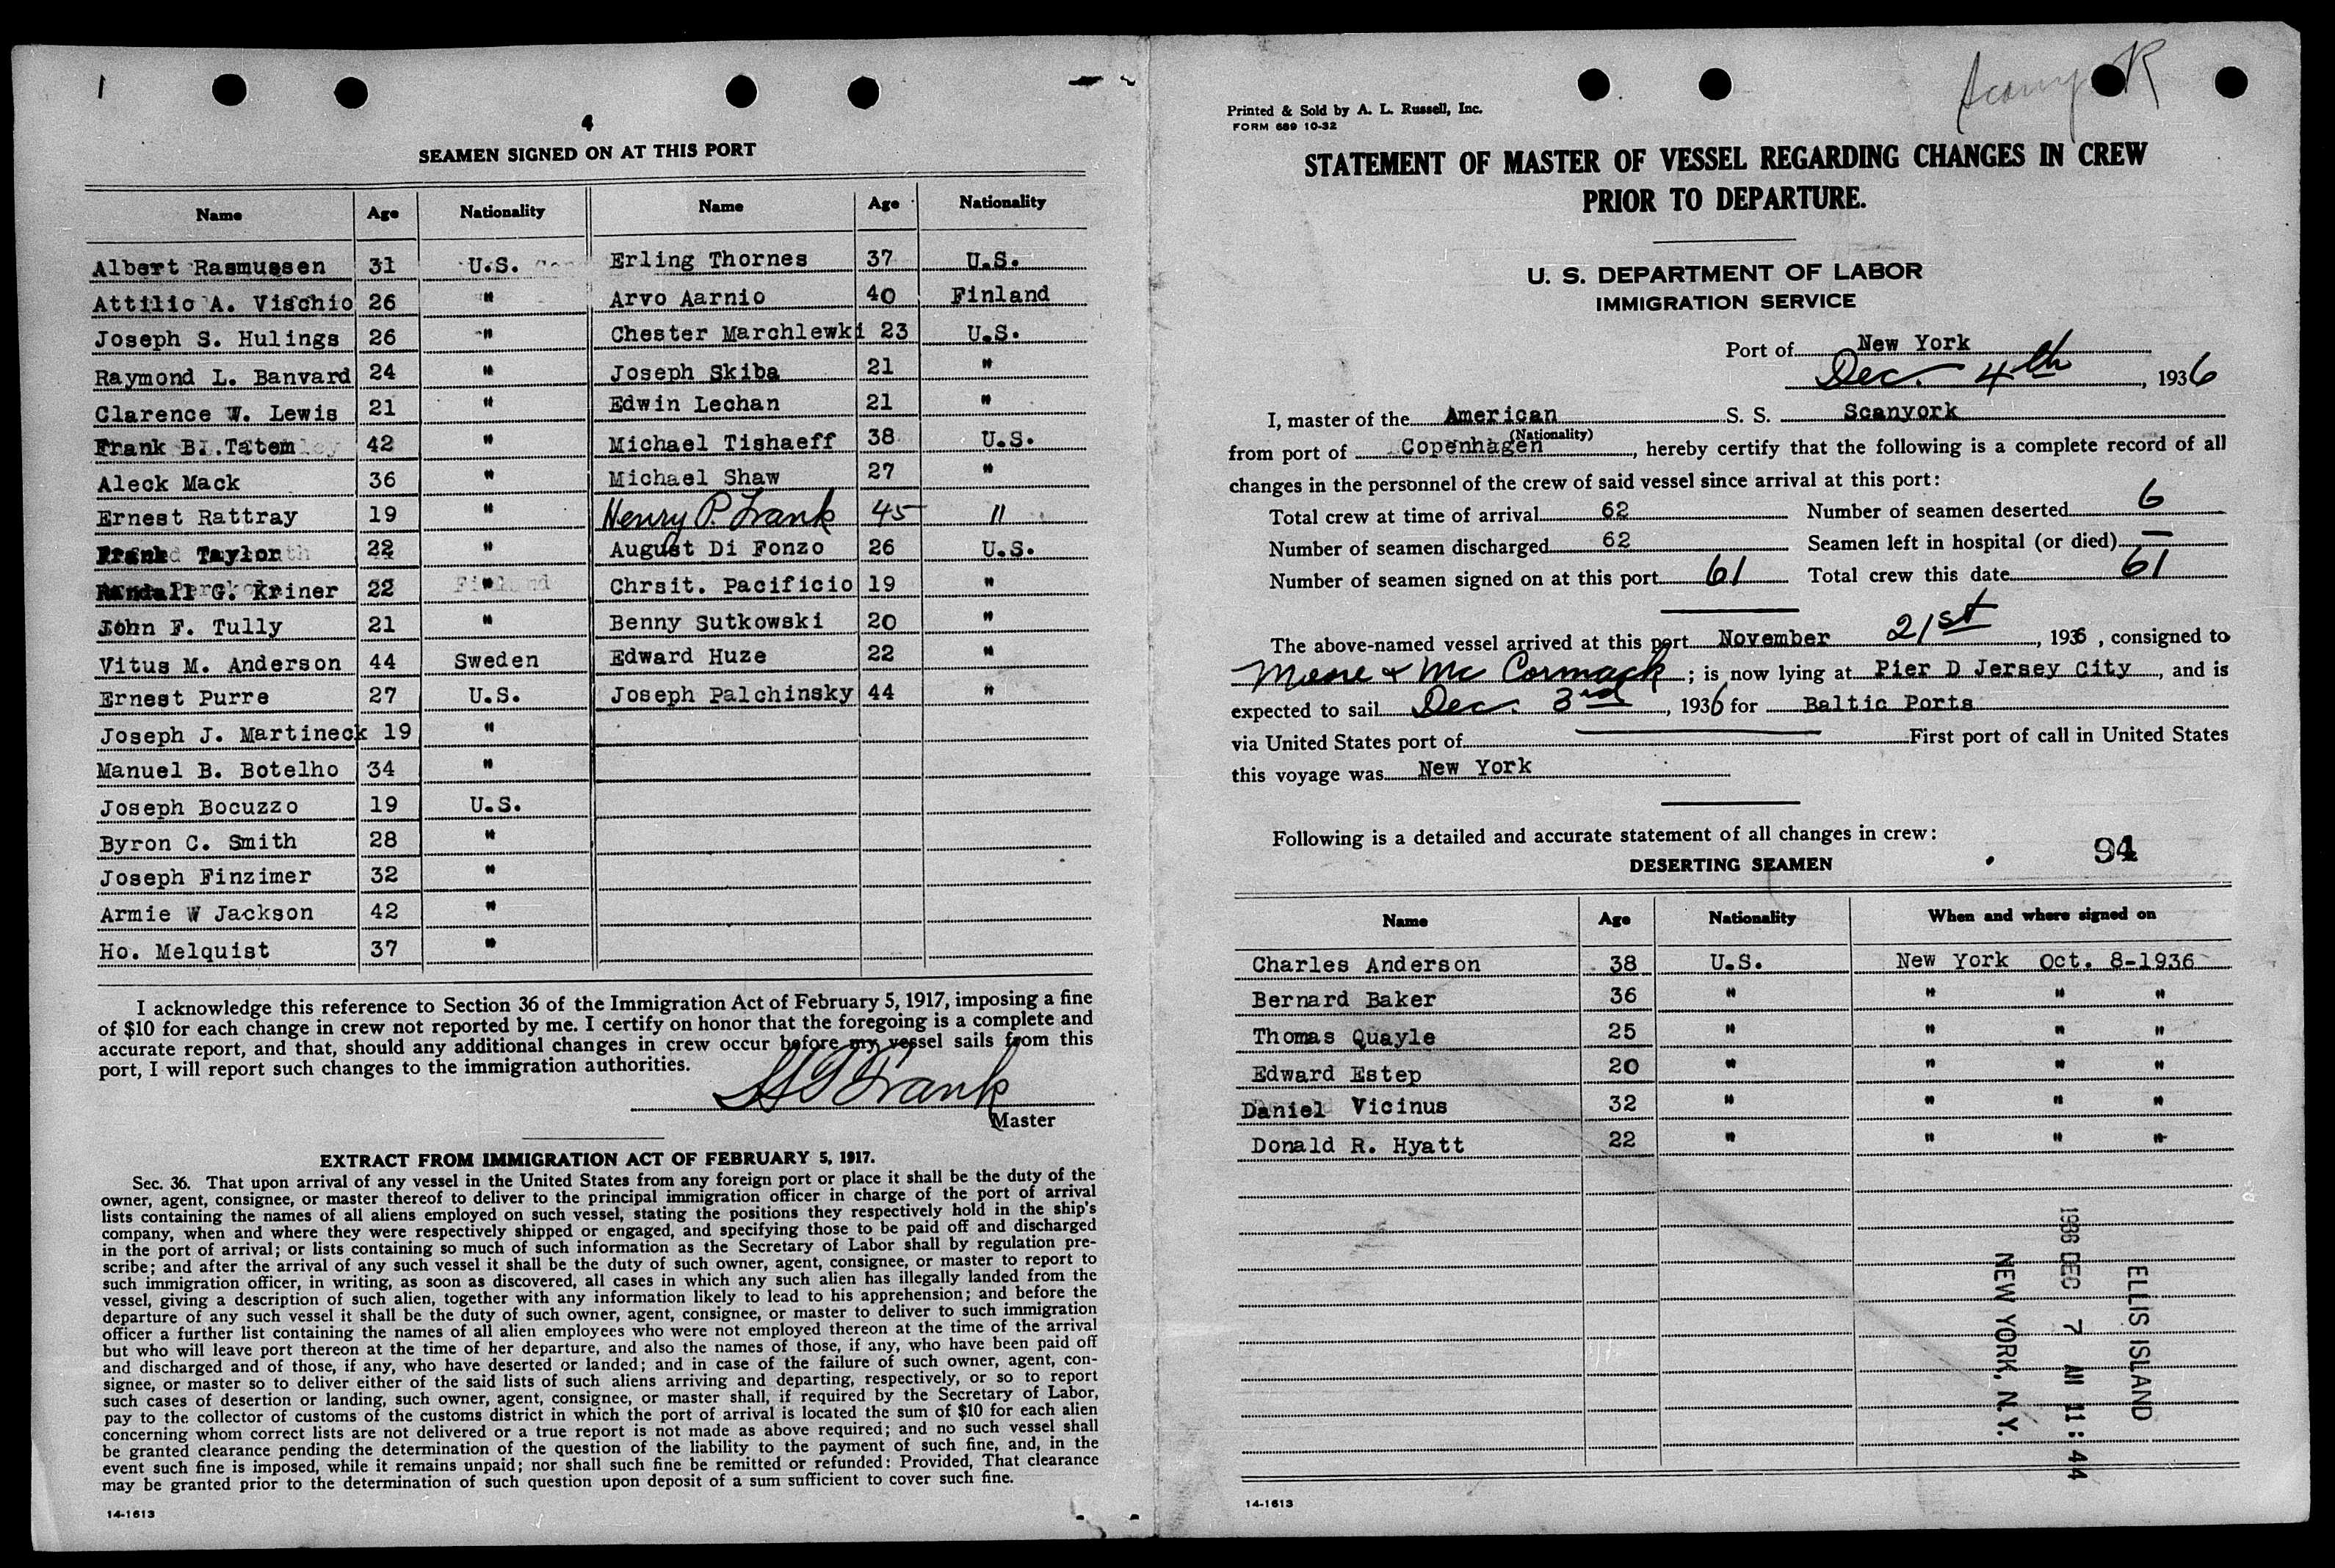 1
4
SEAMEN SIGNED ON AT THIS PORT
Name Age Nationality Name Age Nationality
Albert Rasmussen 31 U.S. Erling Thornes 37 U.S.
Attilio A. Vischio 26 " Arvo Aarnio 40 Finland
Joseph S. Hulings 26 " Chester Marchlewki 23 U.S.
Raymond L. Banvard 24 " Joseph Skiba 21 "
Clarence W. Lewis 21 " Edwin Lechan 21 "
Frank B. Tatem 42 " Michael Tishaeff 38 U.S.
Aleck Mack 36 " Michael Shaw 27 "
Ernest Rattray 19 " Henry P. Frank 45 "
Frank Taylor 22 " August Di Fonzo 26 U.S.
Randall G. Kriner 22 " Chrsit. Pacificio 19 "
John F. Tully 21 " Benny Sutkowski 20 "
Vitus M. Anderson 44 Sweden Edward Huze 22 "
Ernest Purre 27 U.S. Joseph Palchinsky 44 "
Joseph J. Martineck 19 "
Manuel B. Botelho 34 "
Joseph Bocuzzo 19 U.S.
Byron C. Smith 28 "
Joseph Finzimer 32 "
Armie W Jackson 42 "
Ho. Melquist 37 "
I acknowledge this reference to Section 36 of the Immigration Act of February 5, 1917, imposing a fine
of $10 for each change in crew not reported by me. I certify on honor that the foregoing is a complete and
accurate report, and that, should any additional changes in crew occur before my vessel sails from this
port, I will report such changes to the immigration authorities.
H P Frank
Master
EXTRACT FROM IMMIGRATION ACT OF FEBRUARY 5, 1917.
Sec. 36. That upon arrival of any vessel in the United States from any foreign port or place it shall be the duty of the
owner, agent, consignee, or master thereof to deliver to the principal immigration officer in charge of the port of arrival
lists containing the names of all aliens employed on such vessel, stating the positions they respectively hold in the ship's
company, when and where they were respectively shipped or engaged, and specifying those to be paid off and discharged
in the port of arrival; or lists containing so much of such information as the Secretary of Labor shall by regulation pre-
scribe; and after the arrival of any such vessel it shall be the duty of such owner, agent, consignee, or master to report to
such immigration officer, in writing, as soon as discovered, all cases in which any such alien has illegally landed from the
vessel, giving a description of such alien, together with any information likely to lead to his apprehension; and before the
departure of any such vessel it shall be the duty of such owner, agent, consignee, or master to deliver to such immigration
officer a further list containing the names of all alien employees who were not employed thereon at the time of the arrival
but who will leave port thereon at the time of her departure, and also the names of those, if any, who have been paid off
and discharged and of those, if any, who have deserted or landed; and in case of the failure of such owner, agent, con-
signee, or master so to deliver either of the said lists of such aliens arriving and departing, respectively, or so to report
such cases of desertion or landing, such owner, agent, consignee, or master shall, if required by the Secretary of Labor,
pay to the collector of customs of the customs district in which the port of arrival is located the sum of $10 for each alien
concerning whom correct lists are not delivered or a true report is not made as above required; and no such vessel shall
be granted clearance pending the determination of the question of the liability to the payment of such fine, and, in the
event such fine is imposed, while it remains unpaid; nor shall such fine be remitted or refunded: Provided, That clearance
may be granted prior to the determination of such question upon deposit of a sum sufficient to cover such fine.
14-1613
Scanyork
Printed & Sold by A. L. Russell, Inc.
FORM 689 10-32
STATEMENT OF MASTER OF VESSEL REGARDING CHANGES IN CREW
PRIOR TO DEPARTURE.
U. S. DEPARTMENT OF LABOR
IMMIGRATION SERVICE
Port of New York
Dec. 4th, 1936
I, master of the American S. S. Scanyork
(Nationality)
from port of Copenhagen, hereby certify that the following is a complete record of all
changes in the personnel of the crew of said vessel since arrival at this port:
Total crew at time of arrival 62 Number of seamen deserted 6
Number of seamen discharged 62 Seamen left in hospital (or died) —
Number of seamen signed on at this port 61 Total crew this date 61
The above-named vessel arrived at this port November 21st, 1936, consigned to
Moore & Mc Cormack; is now lying at Pier D Jersey City, and is
expected to sail Dec. 3rd, 1936 for Baltic Ports
via United States port of First port of call in United States
this voyage was New York
Following is a detailed and accurate statement of all changes in crew:
94
DESERTING SEAMEN
Name Age Nationality When and where signed on
Charles Anderson 38 U.S. New York Oct. 8-1936
Bernard Baker 36 " " " "
Thomas Quayle 25 " " " "
Edward Estep 20 " " " "
Daniel Vicinus 32 " " " "
Donald R. Hyatt 22 " " " "
ELLIS ISLAND
1936 DEC 7 AM 11:44
NEW YORK, N.Y.
14-1613